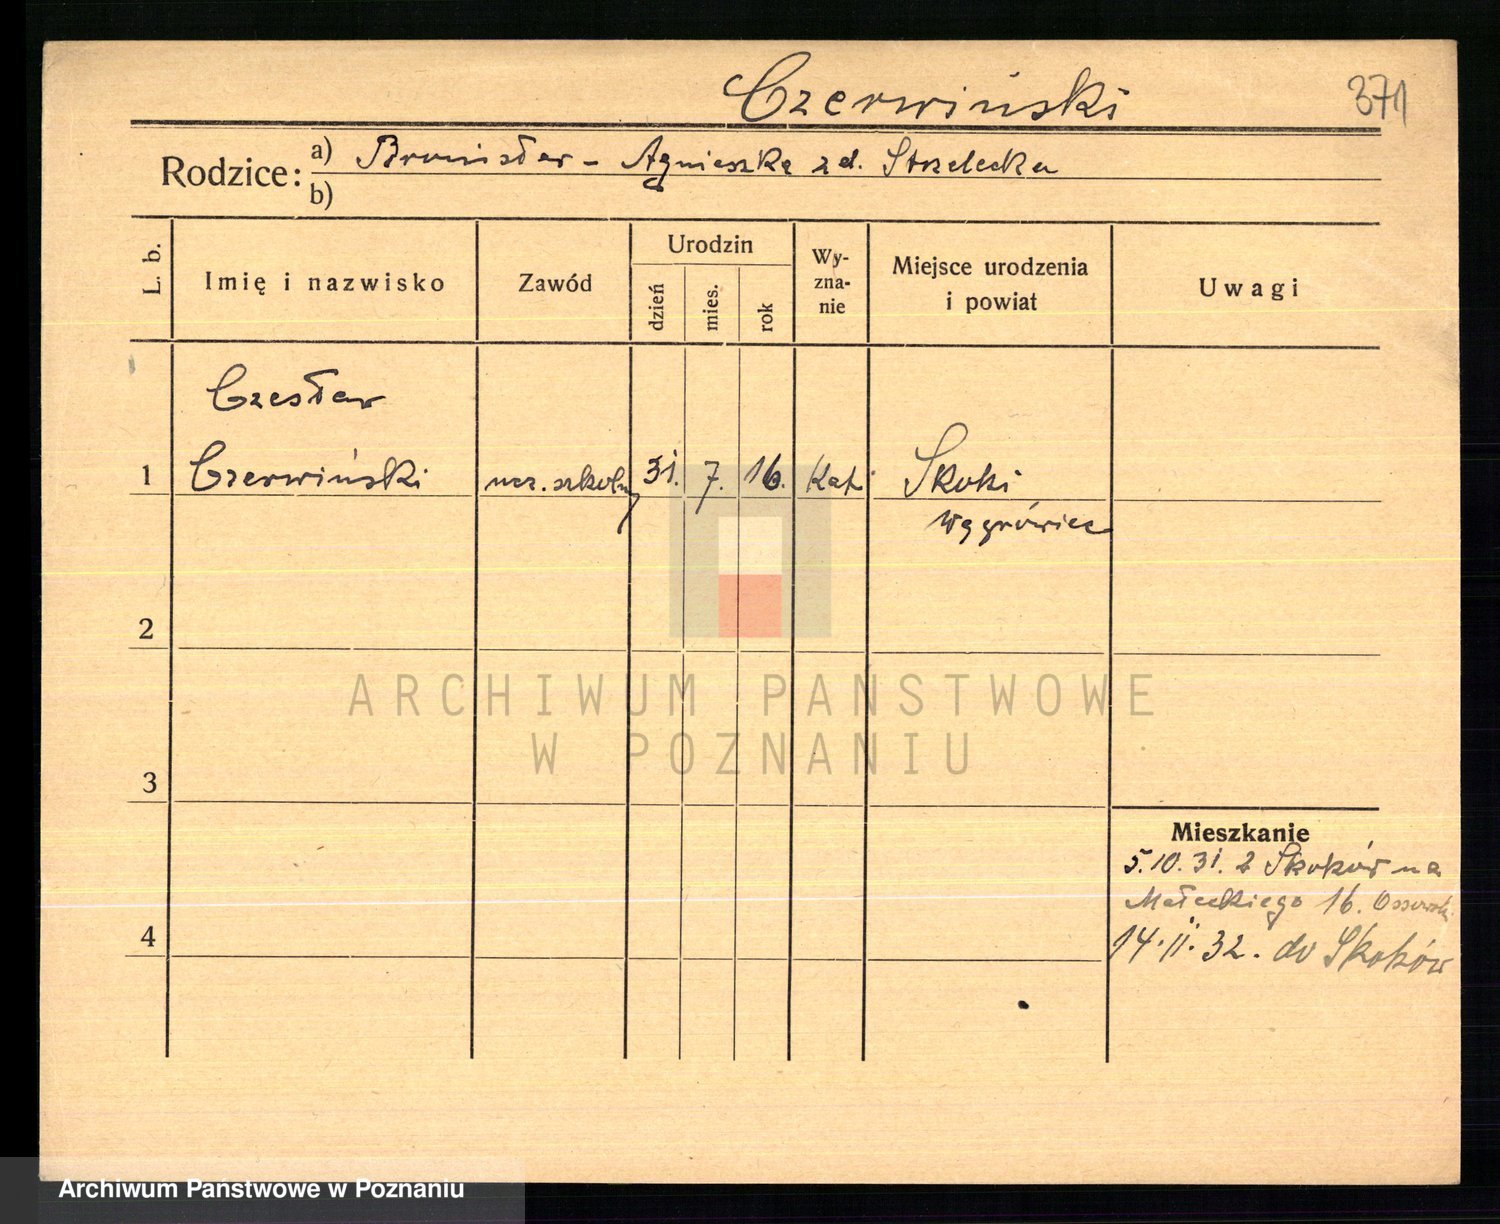 Czerwiński
371
Rodzice:
a) Bronisław - Agnieszka zd. Strzelecka
b)
L. b.
Imię i nazwisko
Zawód
Urodzin
dzień
mies.
rok
Wy-
zna-
nie
Miejsce urodzenia
i powiat
Uwagi
Czesław
1 Czerwiński ucz. szkolny 31. 7. 16. Kat. Skoki
Wągrówiec
2
3
4
Mieszkanie
5.10.31. z Skoków na
Małeckiego 16.
14.II.32. do Skoków
ARCHIWUM PAŃSTWOWE
W POZNANIU
Archiwum Państwowe w Poznaniu